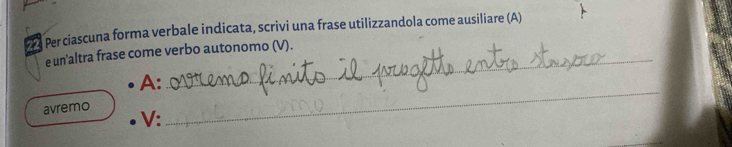 22 Per ciascuna forma verbale indicata, scrivi una frase utilizzandola come ausiliare (A)
e un'altra frase come verbo autonomo (V).
• A: avremo finito il progetto entro stasera
avremo
• V: